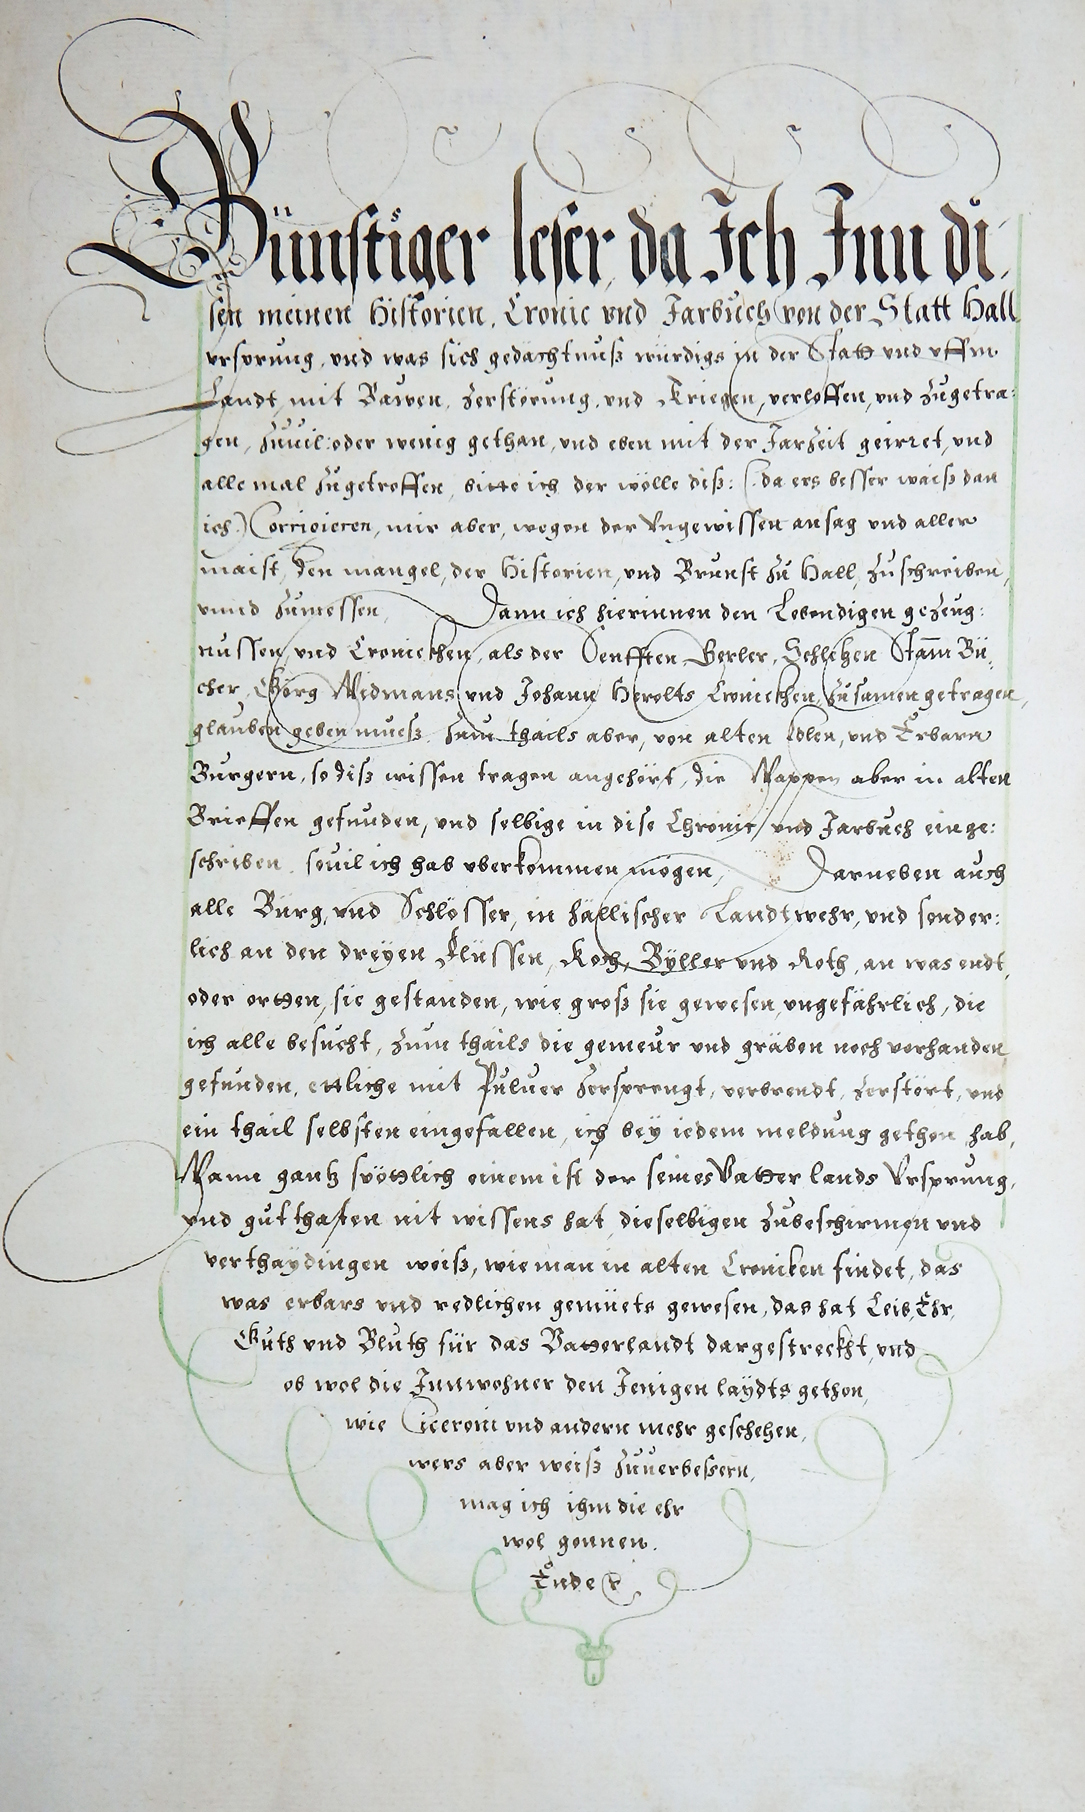 Günstiger leser, da Ich Inn di-
sen meinen Historien, Cronic vnd Jarbuch von der Statt Hall
vrsprung, vnd was sich gedächtnuß würdigs in der Statt vnd vffm
Landt, mit Bawen, Zerstörung, vnd Kriegen, verloffen, vnd zugetra:
gen, zuuil: oder wenig gethan, vnd eben mit der Jarzeit geirret, vnd
alle mal zugetroffen, bitte ich der wölle diß: (:da ers besser waiß dan
ich:) Corrigieren, mir aber, wegen der Vngewissen ansag vnd aller
maist, den mangel, der Historien, vnd Brunst zu Hall, zuschreiben,
vnnd zumessen, Dann ich hierinnen den Lebendigen gezeug:
nussen, vnd Cronickhen, als der Senfften Berler, Schletzen Stam̄ Bü:
cher, Görg Widmans, vnd Johann Herolts Cronickhen, zusamen getragen,
glauben geben mueß. Zum thails aber, von alten Edlen, vnd Erbarn
Burgern, so diß wissen tragen angehört, die Wappen aber in alten
Brieffen gefunden, vnd selbige in dise Chronic, vnd Jarbuch einge:
schriben, souil ich hab vberkommen mögen, Darneben auch
alle Burg, vnd Schlösser, in hällischer Landtwehr, vnd sonder:
lich an den dreyen Flüssen, Koch, Byller vnd Roth, an was endt,
oder ortten, sie gestanden, wie groß sie gewesen, vngefährlich, die
ich alle besucht, zum thails die gemeür vnd gräben noch vorhanden,
gefunden, ettliche mit Puluer zersprengt, verbrendt, zerstört, vnd
ein thail selbsten eingefallen, ich bey iedem meldung gethon hab,
Wann gantz spöttlich einem ist der seines Vatterlands Vrsprung,
vnd gutthaten nit wissens hat, dieselbigen zubeschirmen vnd
verthaydingen weiß, wie man in alten Cronicken findet, das
was erbars vnd redlichen gemüets gewesen, das hat Leib, Ehr,
Guth vnd Bluth für das Vatterlandt dargestreckht, vnd
ob wol die Innwohner den Jenigen laydts gethon,
wie Ciceroni vnd andern mehr geschehen,
wers aber weiß zuuerbessern,
mag ich ihm die ehr
wol gonnen.
Ende